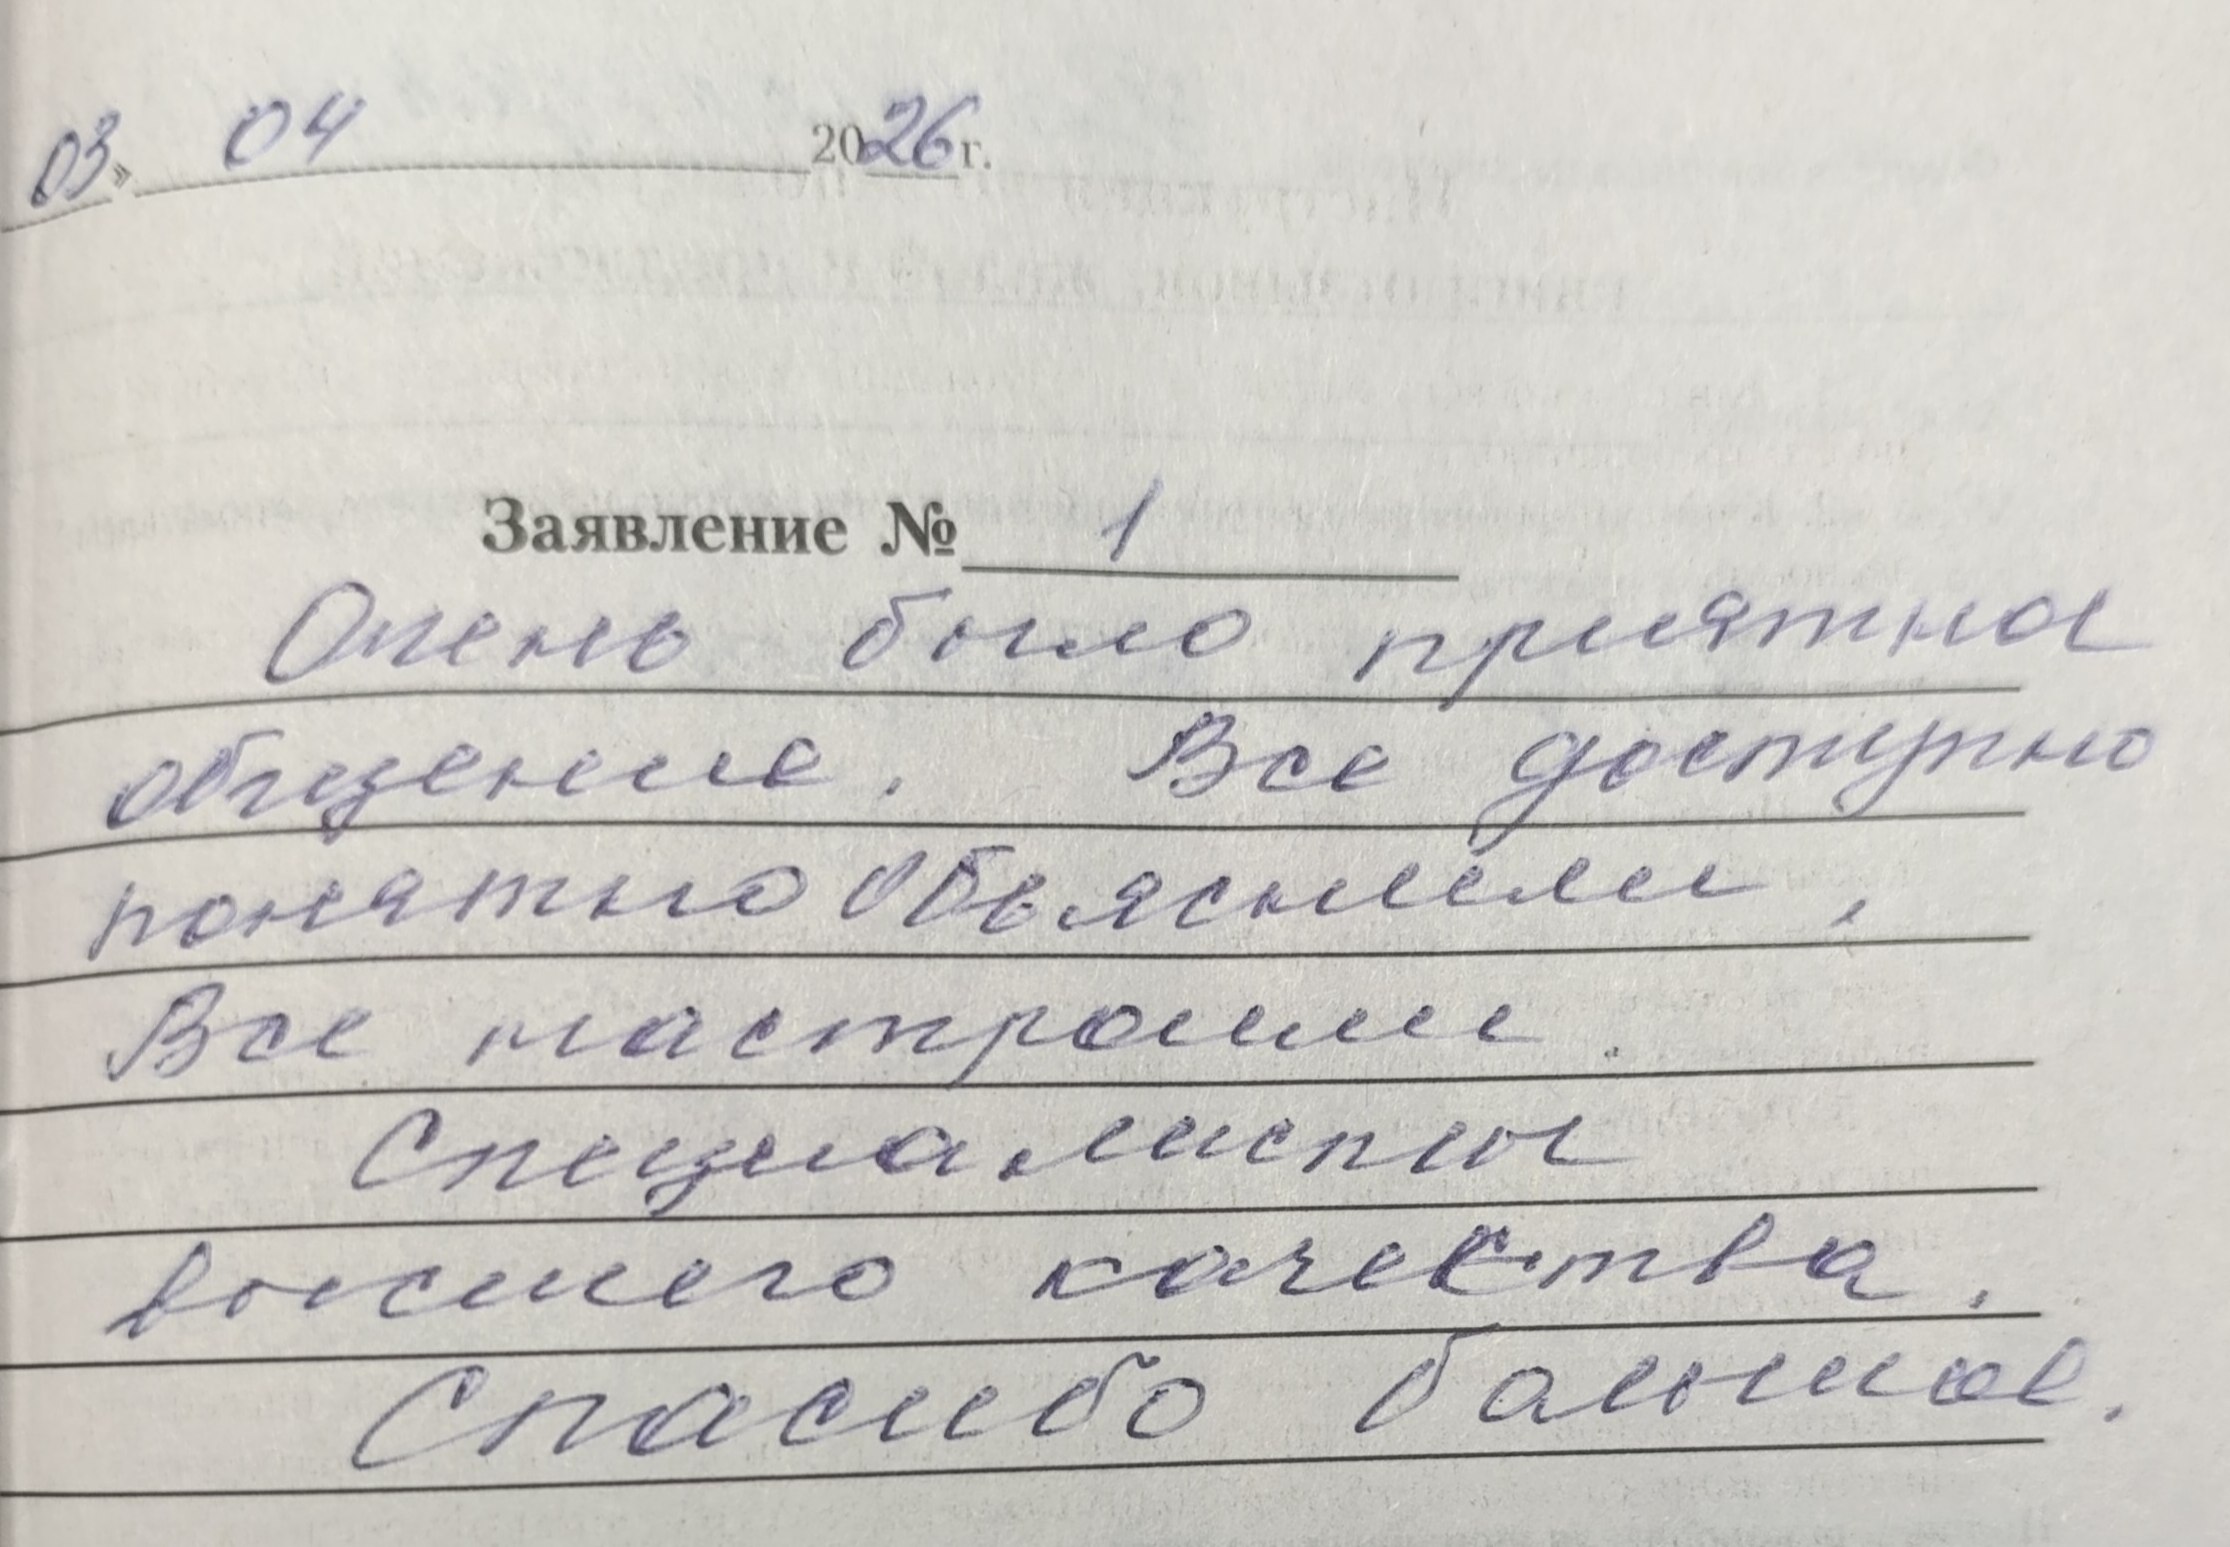 03» 04 2026 г.
Заявление № 1
Очень было приятное
общение. Все доступно
понятно объяснили,
Все настроили.
Специалисты
высшего качества.
Спасибо большое.